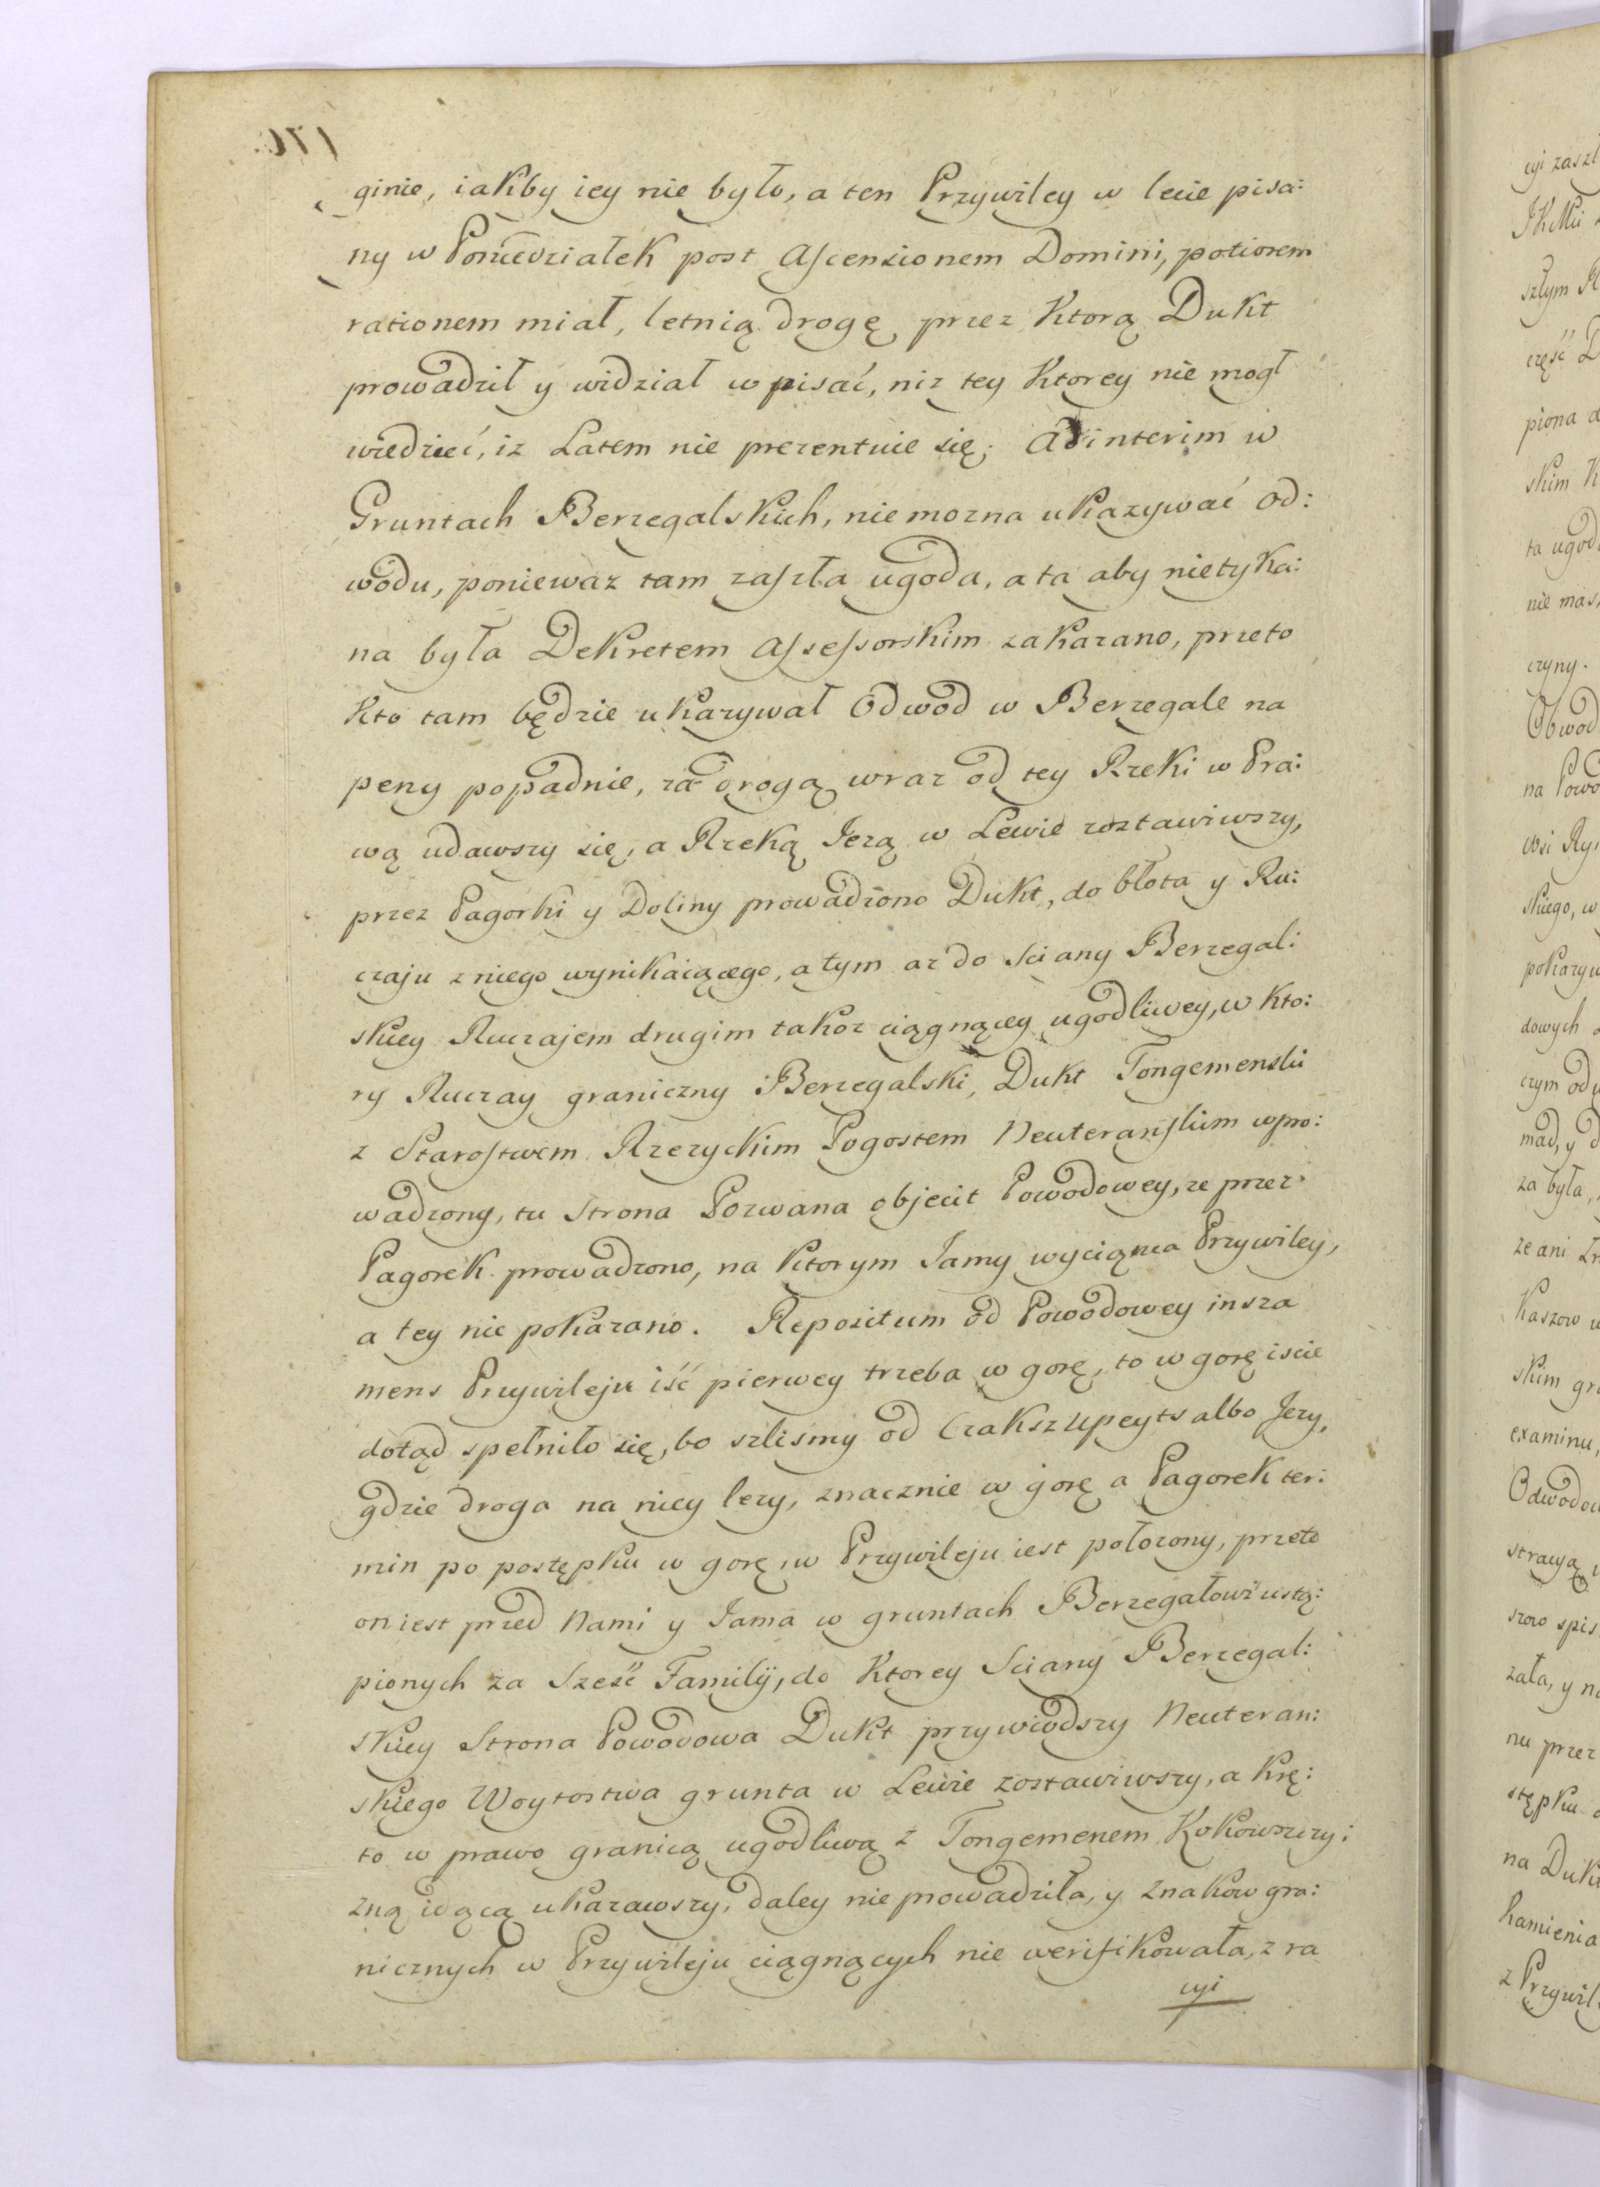 ginie, iakby iey nie było, a ten Przywiley w lecie pisa:
ny w Poniedziałek post Ascensionem Domini, potiorem
rationem miał, letnią drogę przez ktorą Dukt
prowadził y widział wpisać, niz tey ktorey nie mogł
wiedzieć, iz Latem nie prezentuie się. Adinterim w
Gruntach Berzegalskich, nie mozna ukazywać od:
wodu, poniewaz tam zaszła ugoda, a ta aby nietyka:
na była Dekretem Assessorskim zakazano, przeto
kto tam będzie ukazywał Odwod w Berzegale na
peny popadnie, za drogą wraz od tey Rzeki w Pra:
wą udawszy się, a Rzeką Jezą w Lewie zoztawiwszy,
przez Pagorki y Doliny prowadzono Dukt, do błota y Ru:
czaju z niego wynikaiącego, a tym az do Sciany Berzegal:
skiey Ruczajem drugim takoz ciągnącey ugodliwey, w kto:
ry Ruczay graniczny Berzegalski, Dukt Tongemenski
z Starostwem Rzezyckim Pogostem Neuteranskim wpro:
wadzony, tu Strona Pozwana objecit Powodowey, ze przez
Pagorek prowadzono, na ktorym Jamy wyciąma Przywiley,
a tey nie pokazano. Repositum od Powodowey insza
mens Przywileju iść pierwey trzeba w gorę, to w gorę iscie
dotąd spełniło się, bo szlismy od Czakszupeyts albo Jezy,
gdzie droga na niey lezy, znacznie w gorę a Pagorek ter:
min po postępku w gorę, w Przywileju iest połozony, przeto
on iest przed Nami y Jama w gruntach Berzegałowi ustą:
pionych za Sześć Familij, do ktorey Sciany Berzegal:
skiey Strona Powodowa Dukt przywiodszy Neuteran:
skiego Woytostwa grunta w Lewie zostawiwszy, a krę:
to w prawo granicą ugodliwą z Tongemenem Kokowszczy:
zną idącą ukazawszy, daley nie prowadziła, y znakow gra:
nicznych w Przywileju ciągnących nie werifikowała, z ra
cyi